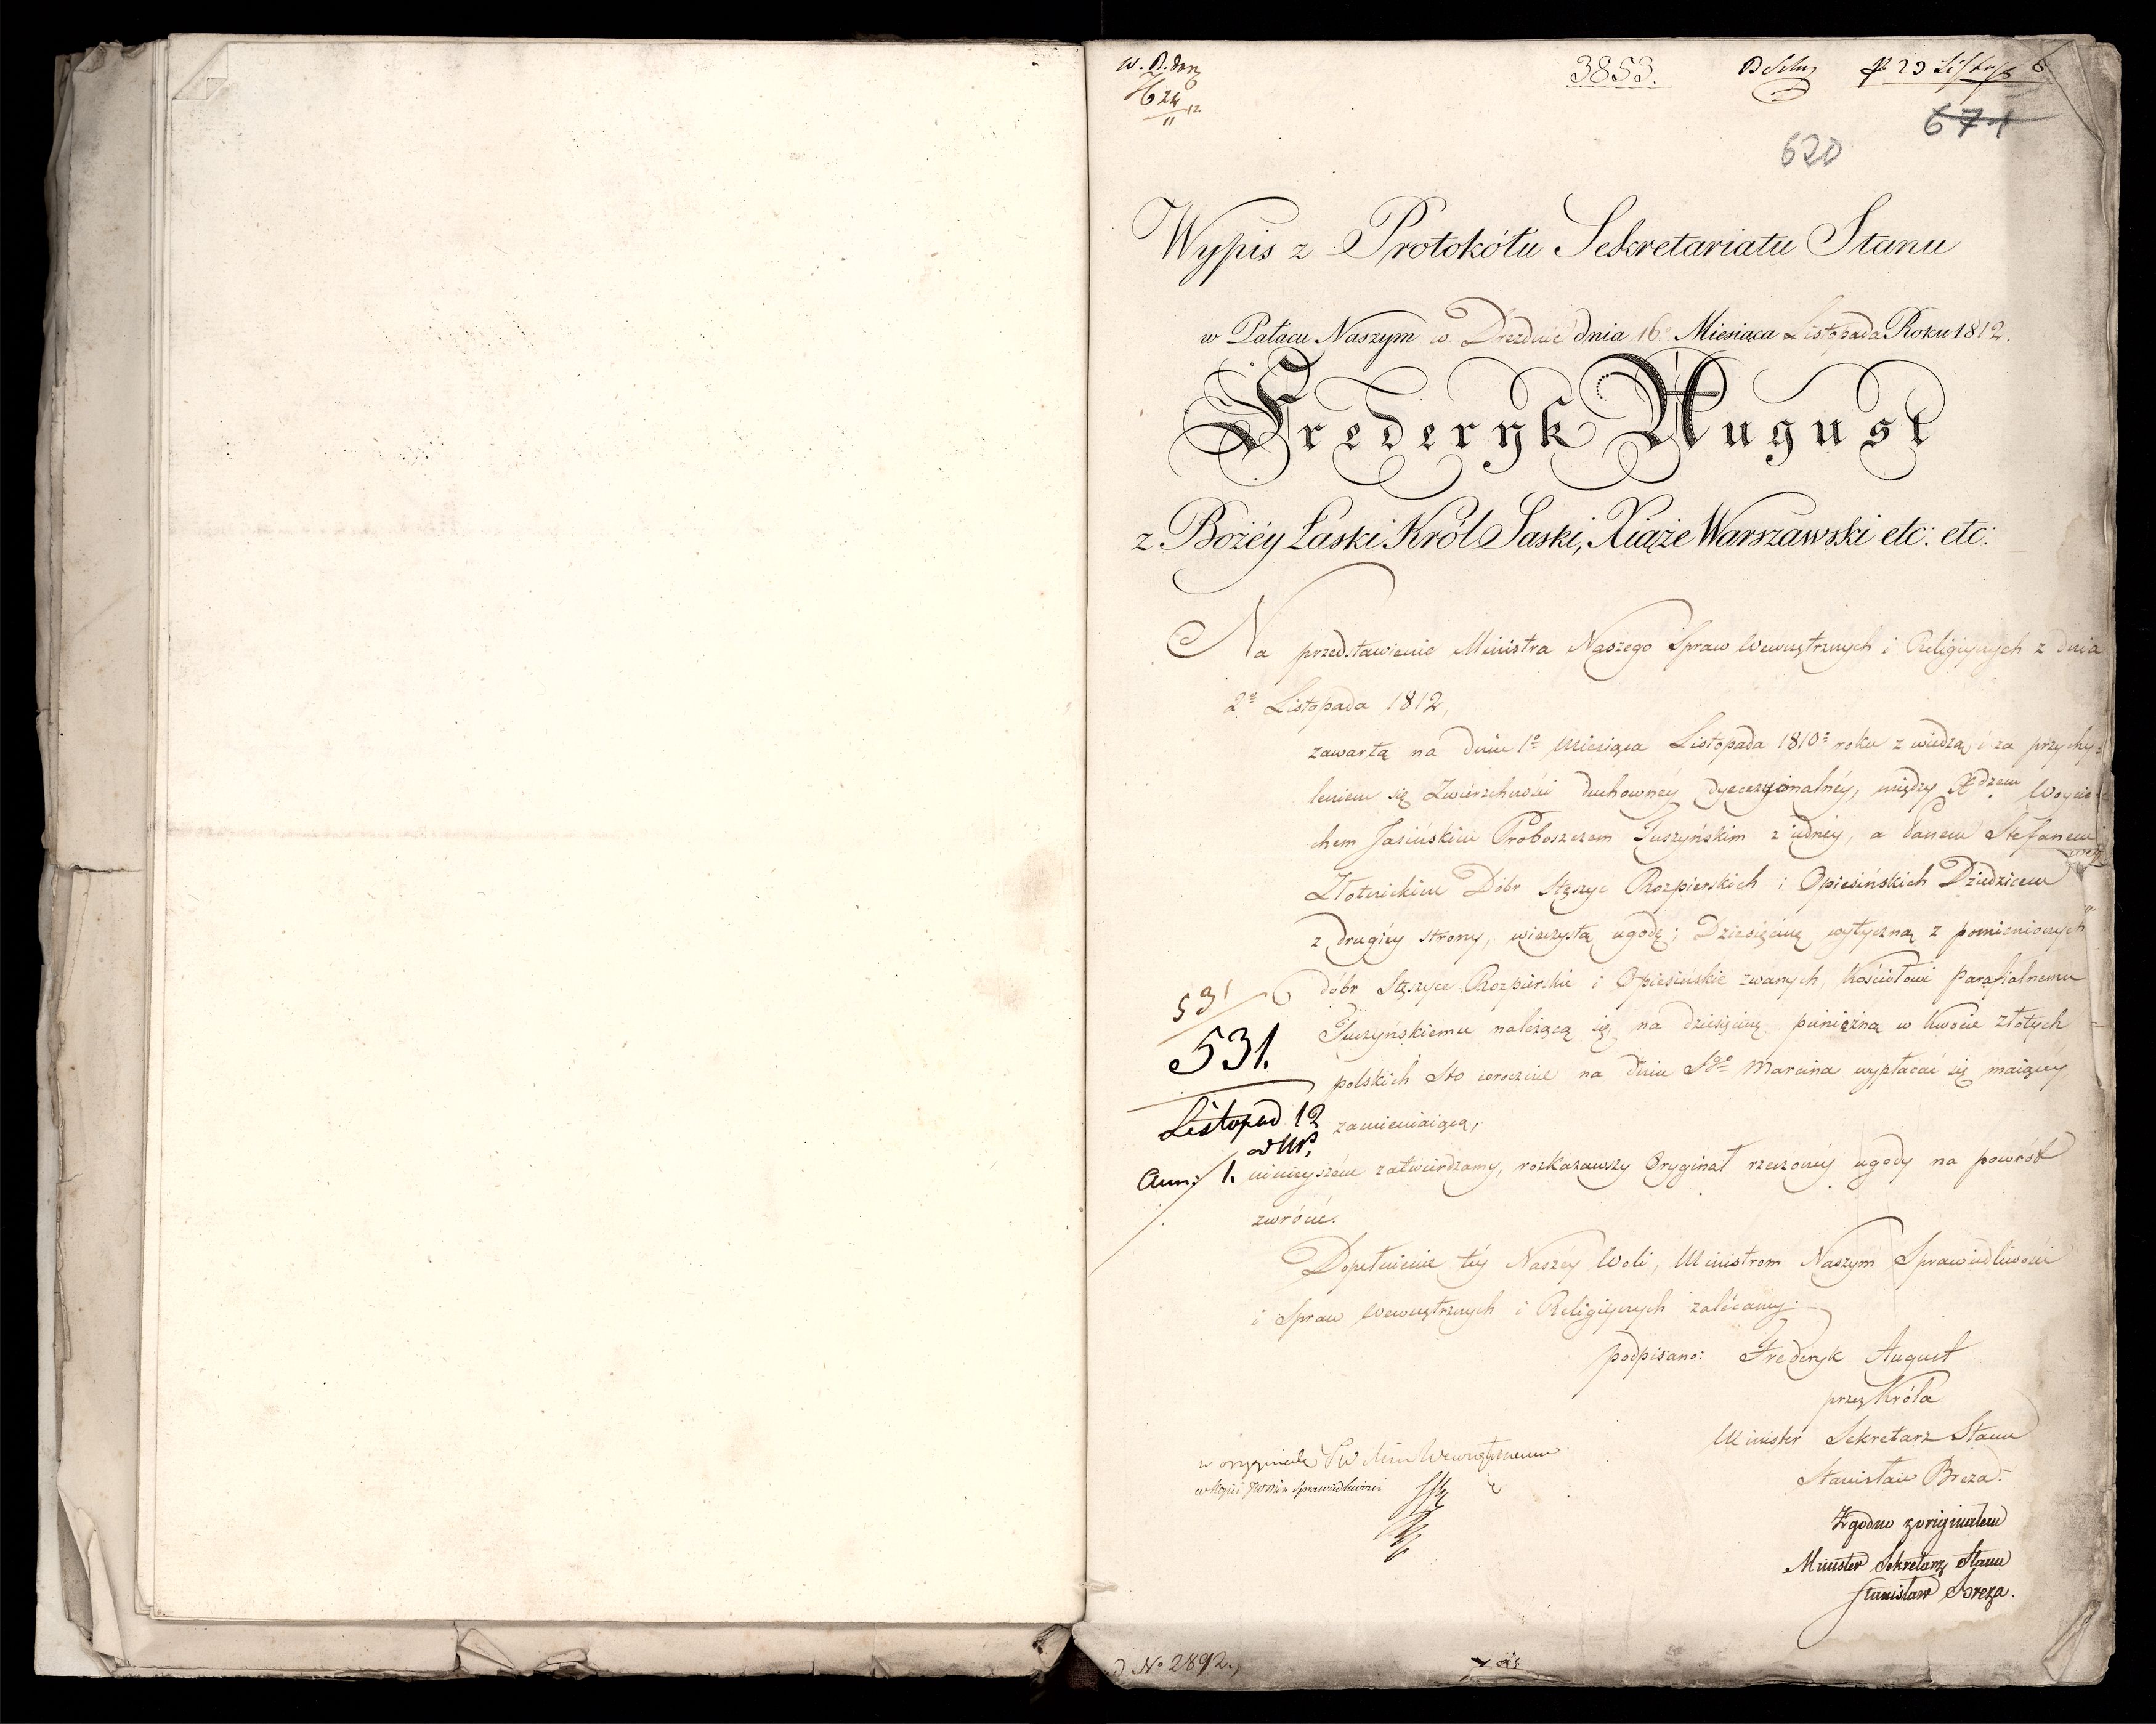 3853.
620
671
Wypis z Protokółu Sekretariatu Stanu
w Pałacu Naszym w Dreznie dnia 16o Miesiąca Listopada Roku 1812.
Frederyk August
z Bożéy Łaski Król Saski, Xiąże Warszawski etc: etc:
Na przedstawienie Ministra Naszego Spraw Wewnętrznych i Religijnych z dnia
2o Listopada 1812,
zawartą na dniu 1o Miesiąca Listopada 1810o roku z wiedzą i za przychy=
leniem się Zwierzchności duchownéy dyecezyonalnéy, między Xdzem Woycie=
chem Jasińskim Proboszczem Tuszyńskim z iednéy, a Panem Stefanem
Złotnickim Dóbr Stęszyc Rozpierskich i Opiesińskich Dziedzicem
z drugiéy strony, wieczystą ugodę; Dziesięcinę wytyczną z pomienionych
dóbr Stęszyce Rozpierskie i Opiesińskie zwanych, Kościołowi Parafialnemu
Tuszyńskiemu należącą się na dziesięcinę pieniężną w kwocie złotych
polskich Sto corocznie na dniu Sgo Marcina wypłacać się maiącéy
zamieniaiącą,
531
531.
Listopad 12
Ann: 1.
ninieyszém zatwierdzamy, rozkazawszy Oryginał rzeczonéy ugody na powrót
zwrócić.
Dopełnienie téy Naszéy Woli, Ministrom Naszym Sprawiedliwości
i Spraw Wewnętrznych i Religijnych zalécamy.
podpisano: Frederyk August
przez Króla
Minister Sekretarz Stanu
Stanisław Breza.
w oryginale
Sprawiedliwości
Zgodno z originałem
Minister Sekretarz Stanu
Stanisław Breza.
No 2892.